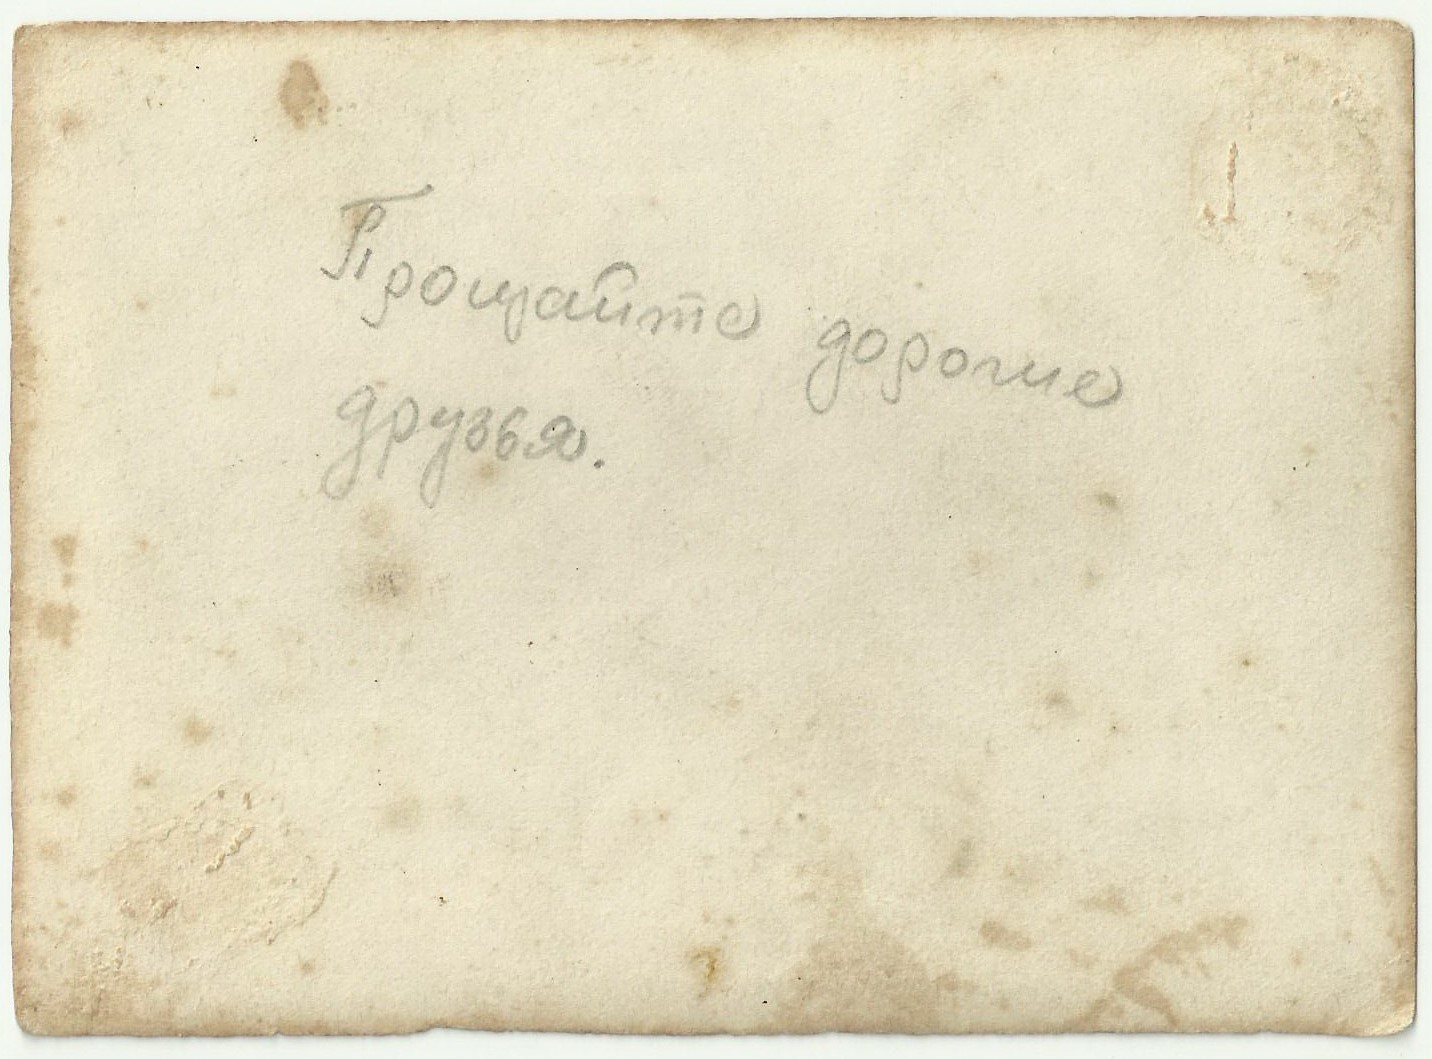 Прощайте дорогие
друзья.